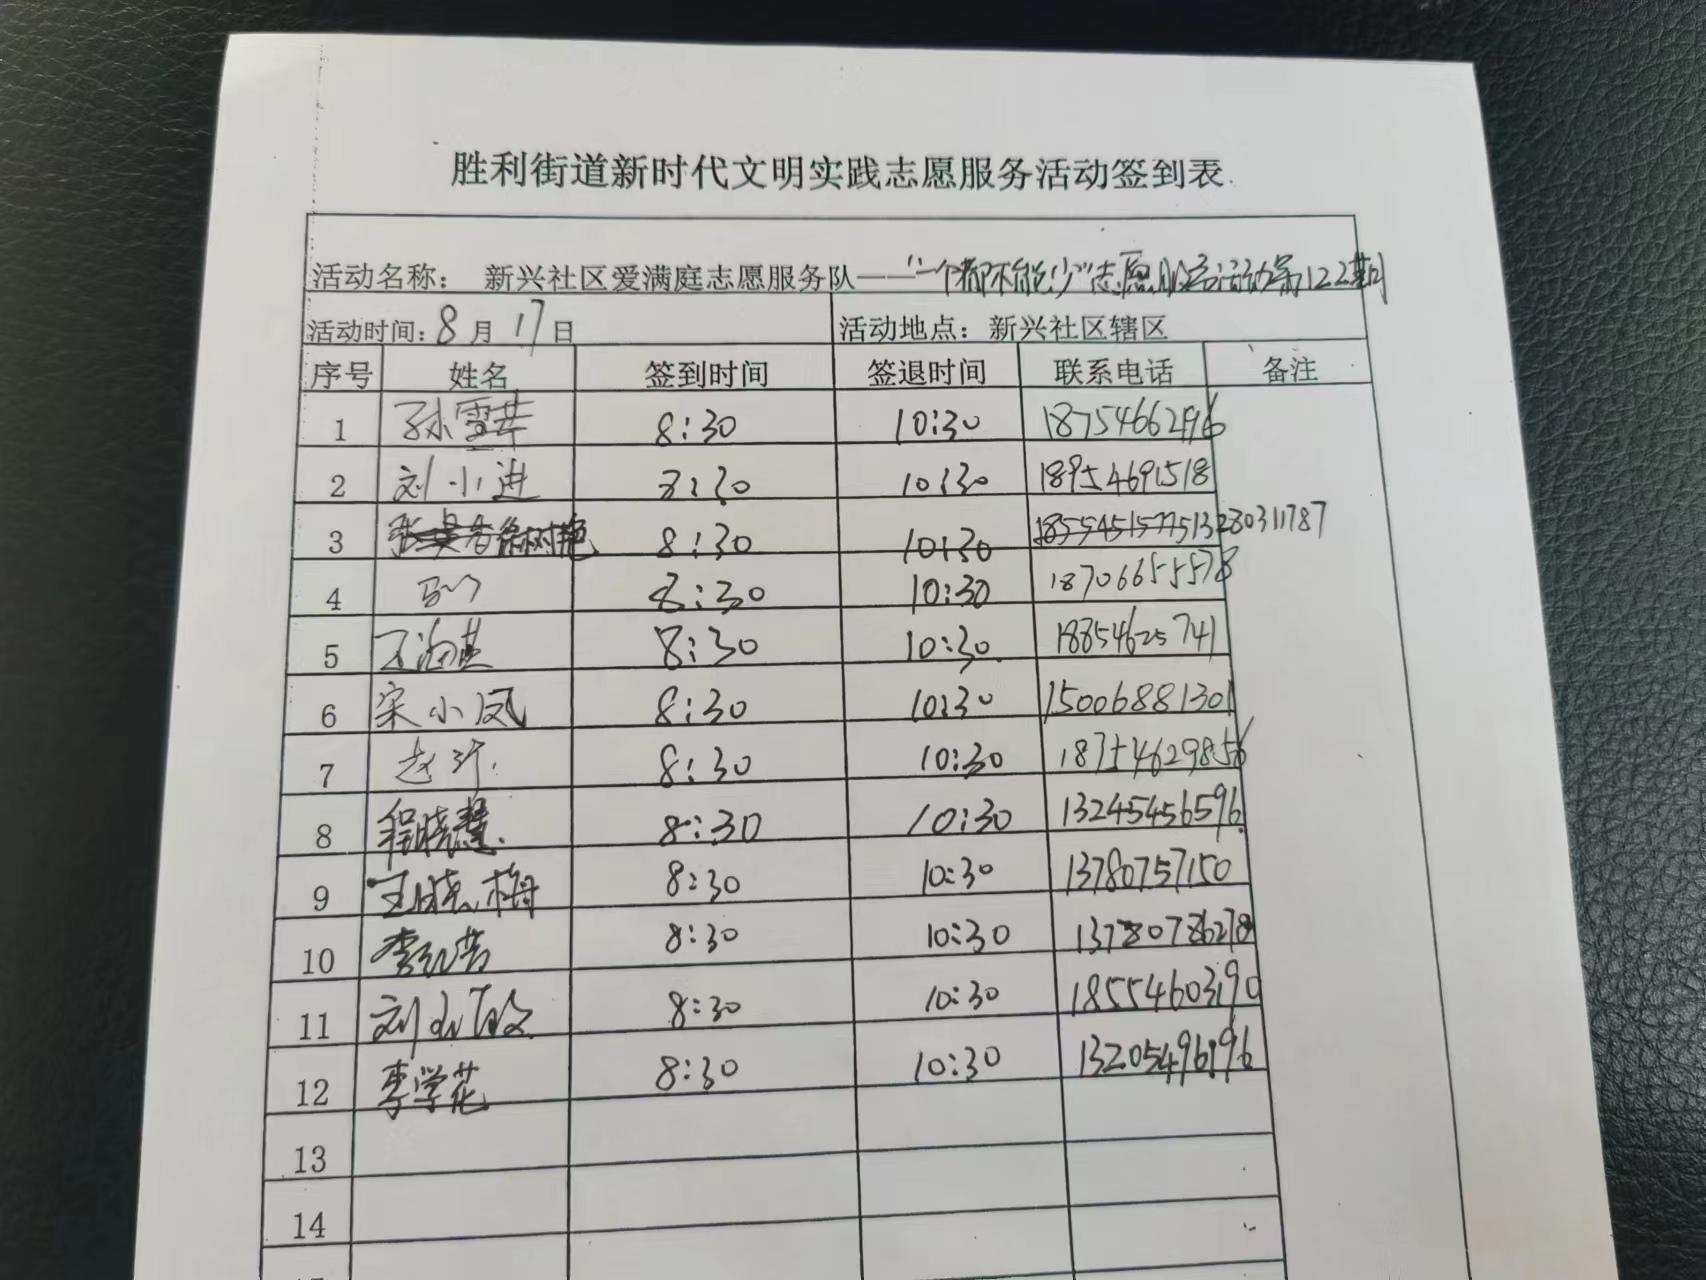 胜利街道新时代文明实践志愿服务活动签到表
活动名称： 新兴社区爱满庭志愿服务队——“一个都不能少”志愿服务活动第122期
活动时间：8月17日 活动地点：新兴社区辖区
序号 姓名 签到时间 签退时间 联系电话 备注
1 孙雪芹 8:30 10:30 18754662496
2 刘小进 8:30 10:30 18954691518
3 徐树艳 8:30 10:30 13280311787
4 8:30 10:30 18706655578
5 王海燕 8:30 10:30 18854625741
6 宋小凤 8:30 10:30 15006881301
7 8:30 10:30 18754629856
8 程晓慧 8:30 10:30 13245456596
9 王晓梅 8:30 10:30 13780757150
10 李红岩 8:30 10:30 13780786278
11 8:30 10:30 18554603190
12 李学花 8:30 10:30 13205496196
13
14